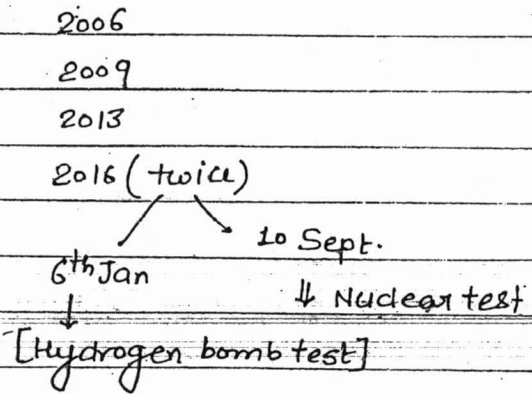 2006
2009
2013
2016 (twice)
10 Sept.
6th Jan
⇓ Nuclear test
↓
[Hydrogen bomb test]